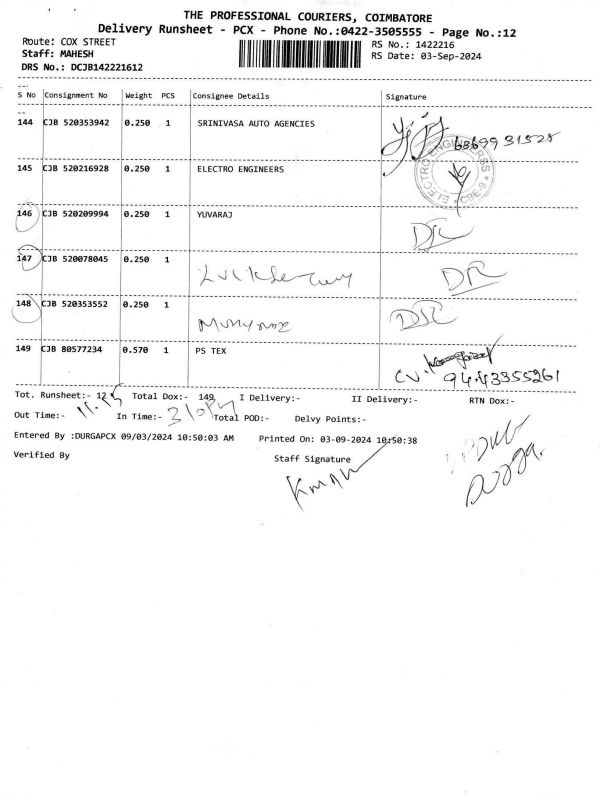 THE PROFESSIONAL COURIERS, COIMBATORE
Delivery Runsheet - PCX - Phone No.:0422-3505555 - Page No.:12
Route: COX STREET
RS No.: 1422216
Staff: MAHESH
RS Date: 03-Sep-2024
DRS No.: DCJB142221612
S No Consignment No Weight PCS Consignee Details Signature
144 CJB 520353942 0.250 1 SRINIVASA AUTO AGENCIES
145 CJB 520216928 0.250 1 ELECTRO ENGINEERS
ELECTRO ENGINEERSS CBE-9
146 CJB 520209994 0.250 1 YUVARAJ
147 CJB 520078045 0.250 1
148 CJB 520353552 0.250 1
149 CJB 80577234 0.570 1 PS TEX
94.43355261
Tot. Runsheet:- 12 Total Dox:- 149 I Delivery:- II Delivery:- RTN Dox:-
Out Time:- 11.15 In Time:- Total POD:- Delvy Points:-
Entered By :DURGAPCX 09/03/2024 10:50:03 AM Printed On: 03-09-2024 10:50:38
Verified By Staff Signature